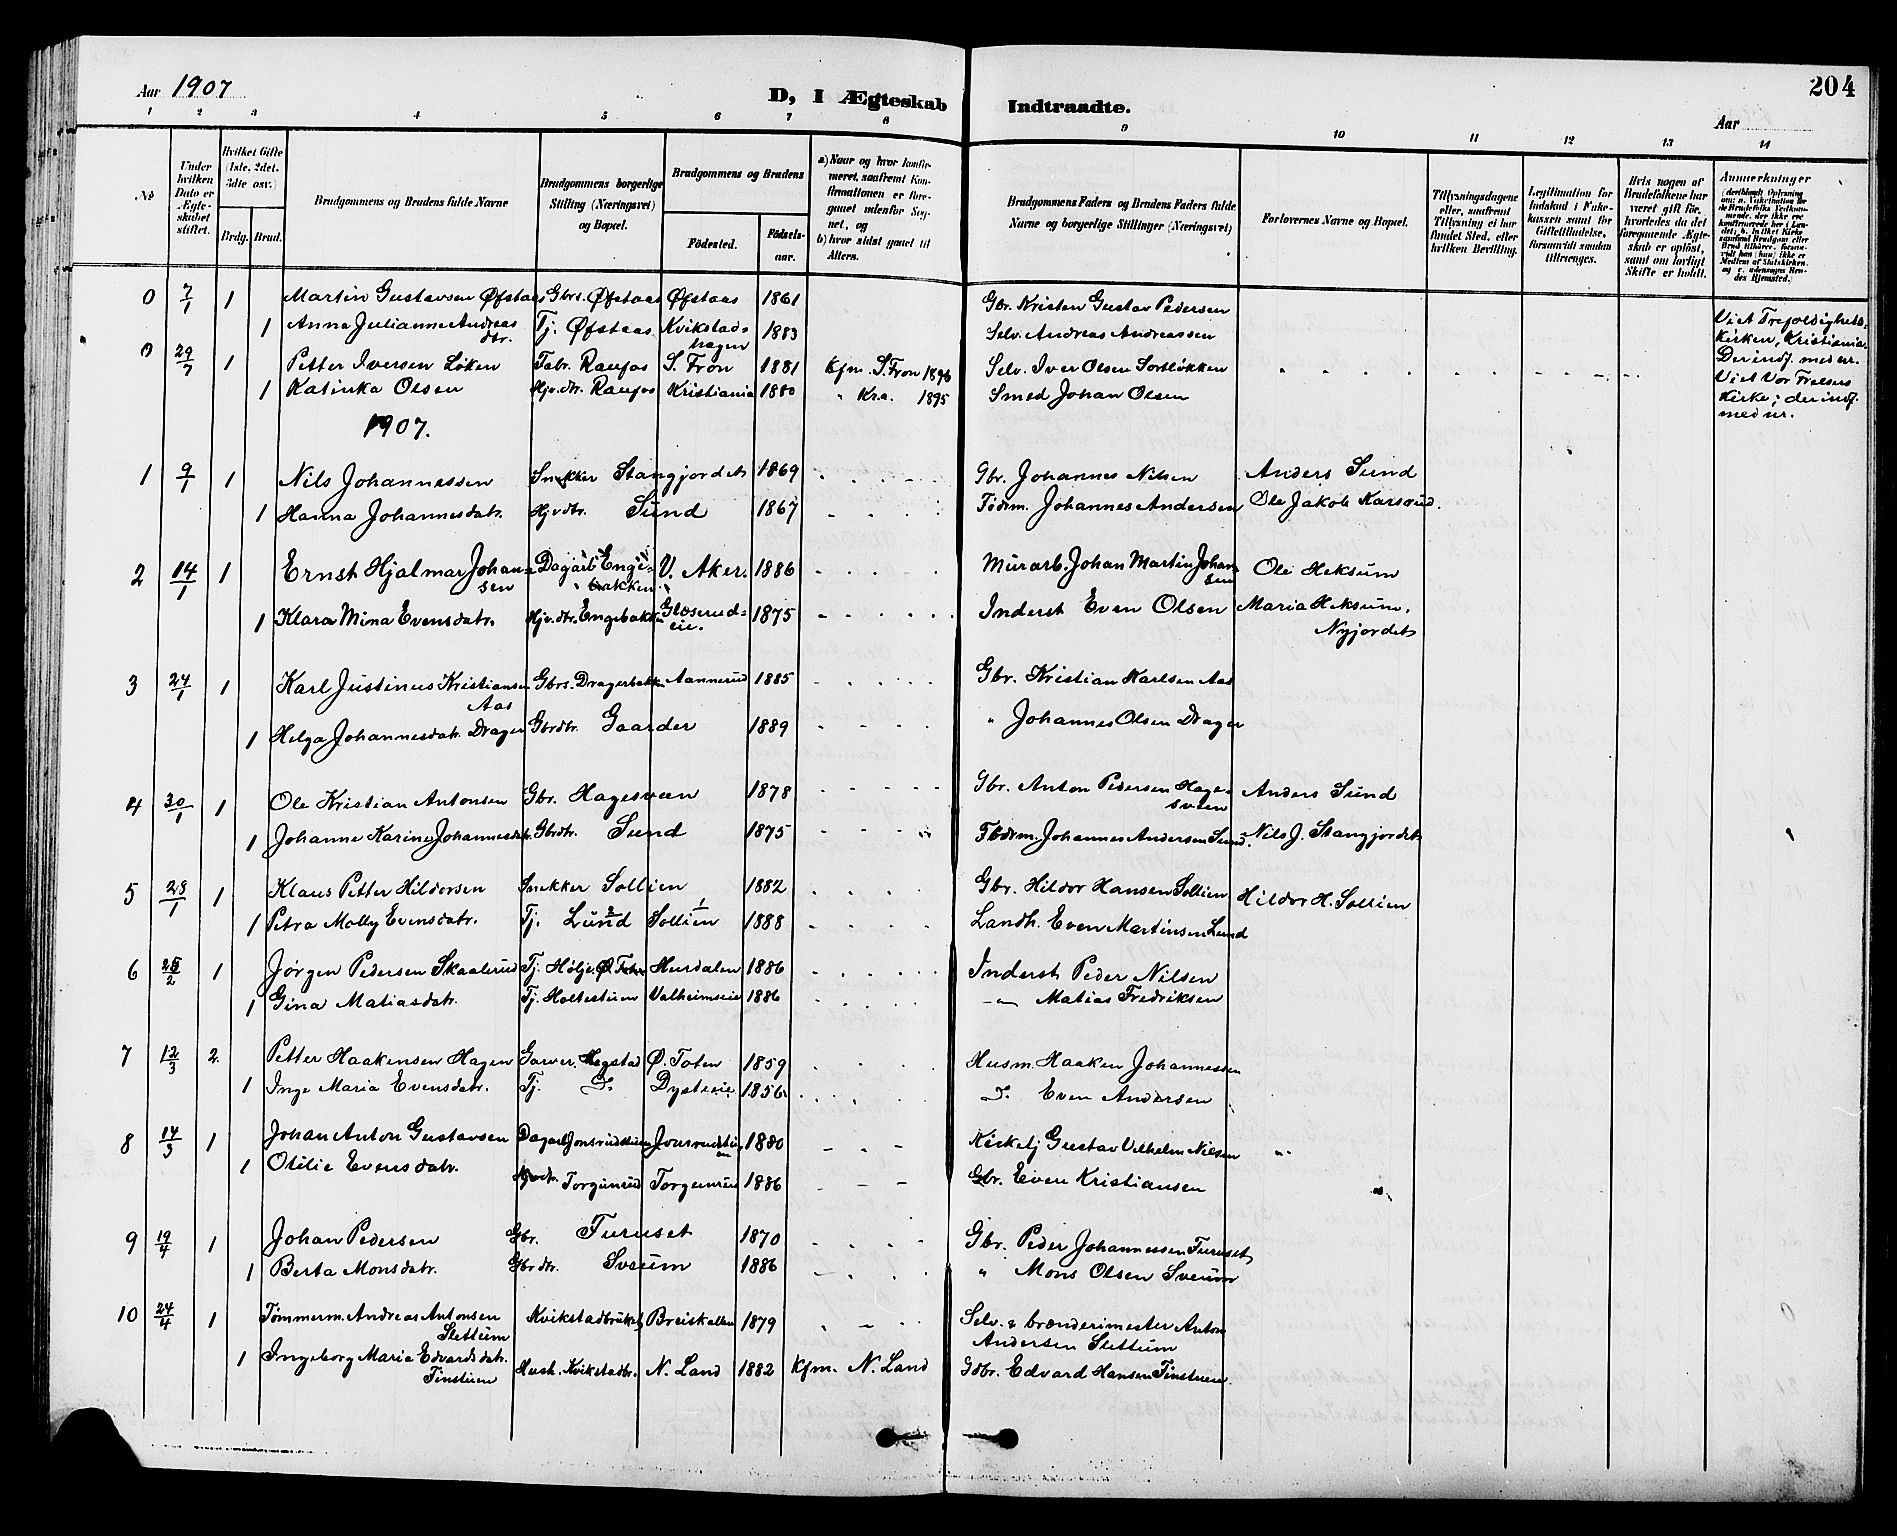 Aar 1907
D, I Ægteskab Indtraadte.
204
Aar
1 2 3 4 5 6 7 8 9 10 11 12 13 14
No
Under hvilken Dato er Ægteskabet stiftet.
Hvilket Gifte (1ste, 2det, 3die osv.)
Brdg. Brud.
Brudgommens og Brudens fulde Navne
Brudgommens borgerlige Stilling (Næringsvei) og Bopæl.
Brudgommens og Brudens
Fødested. Fødselsaar.
a) Naar og hvor konfirmeret, saafremt Konfirmationen er foregaaet udenfor Sognet, og
b) hvor sidst gaaet til Alters.
Brudgommens Faders og Brudens Faders fulde Navne og borgerlige Stillinger (Næringsvei)
Forlovernes Navne og Bopæl.
Tillysningsdagene eller, saafremt Tillysning ei har fundet Sted, efter hvilken Bevilling.
Legitimation for Indskud i Enkekassen samt for Giftetilladelse, forsaavidt saadan tiltrænges.
Hvis nogen af Brudefolkene har været gift før, hvorledes da det foregaaende Ægteskab er opløst, samt om lovligt Skifte er holdt.
Anmerkninger
0 7/1 1 Martin Gustavsen Øfstaas Gbrs. Øfstaas Øfstaas 1861 Gbr. Kristen Gustav Pedersen Viet Trefoldigheds-
1 Anna Julianne Andreas dtr. Tj. Øfstaas Kvikstadhagen 1883 Selv. Andreas Andreassen kirken, Kristiania. Der indf. med nr.
0 29/7 1 Petter Iversen Løken Fabr. Raufos S. Fron 1881 Kfm. S. Fron 1896 Selv. Iver Olsen Sortløkken Viet Vor Frelsers
1 Katinka Olsen Hjv.dtr. Raufos Kristiania 1880 " Kra. 1895 Smed Johan Olsen Kirke; der indf. med nr.
1907.
1 9/1 1 Nils Johannessen Snekker Stangjordet 1869 Gbr. Johannes Nilsen Anders Sund
1 Hanna Johannesdatr. Hjvdtr. Sund 1867 Fødrm. Johannes Andersen Ole Jakob Karsrud.
2 14/1 1 Ernst Hjalmar Johansen Dagarb. Engebakken V. Aker. 1886 Murarb. Johan Martin Johansen Ole Heksum
1 Klara Mina Evensdatr. Hjv.dtr. Engebakken Glæserudeie. 1875 Inderst Even Olsen Maria Heksum,
Nyjordet
3 24/1 1 Karl Justinus Kristiansen Aas Gbrs. Dragerbakken Aannerud 1885 Gbr. Kristian Karlsen Aas
1 Helga Johannesdatr. Drager Gbrdtr. Gaarder 1889 " Johannes Olsen Drager
4 30/1 1 Ole Kristian Antonsen Gbr. Hagesveen 1878 Gbr. Anton Pedersen Hagesveen Anders Sund
1 Johanne Karine Johannesdatr. Gbrdtr. Sund 1875 Fødrm. Johannes Andersen Sund. Nils J. Stangjordet
5 28/1 1 Klaus Petter Hildorsen Snekker Sollien 1882 Gbr. Hildor Hansen Sollien Hildor H. Sollien
1 Petra Molly Evensdatr. Tj. Lund Sollien 1888 Landh. Even Martinsen Lund
6 25/2 1 Jørgen Pedersen Skaalerud Tj. Hølje, Ø. Toten Hurdalen 1886 Inderst Peder Nilsen
1 Gina Matiasdatr. Tj. Holtestuen Valheimseie 1886 — " — Matias Fredriksen
7 12/3 2. Petter Haakensen Hagen Garver. Hegstad Ø. Toten 1859 Husm. Haaken Johannessen
1 Inge Maria Evensdatr. Tj. D. Dysteeie 1856. D. Even Andersen
8 14/3 1 Johan Anton Gustavsen Dagarb. Jonsrudstuen Jonsrudstuen 1880 Kirketj Gustav Vilhelm Nilsen
1 Otilie Evensdatr. Hjvdtr. Torgunrud Torgunrud 1886 Gbr. Even Kristiansen
9 19/4 1 Johan Pedersen Gbr. Turuset 1870 Gbr. Peder Johannessen Turuset
1 Berta Monsdatr. Gbrdtr. Sveum 1886 " Mons Olsen Sveum
10 24/4 1 Tømmerm. Andreas Antonsen Slettum Kvikstadbruket Breiskallen 1879 Selv. & brænderimester Anton Andersen Slettum
1 Ingeborg Maria Edvardsdatr. Finstuen Hush. Kvikstadbr. N. Land 1882 Kfm. N. Land Gdbr. Edvard Hansen Finstuen.